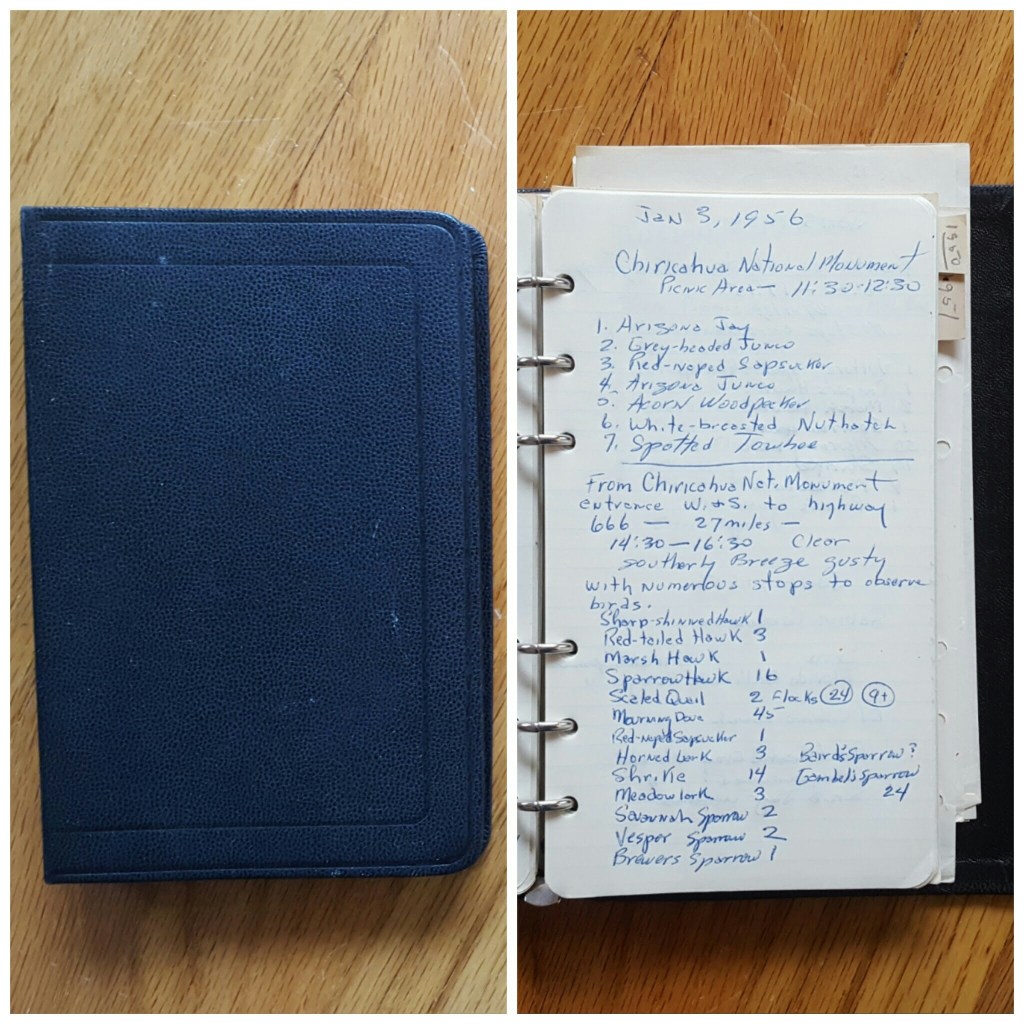 Jan 3, 1956
Chiricahua National Monument
Picnic Area — 11:30-12:30
1. Arizona Jay
2. Grey-headed Junco
3. Red-naped Sapsucker
4. Arizona Junco
5. Acorn Woodpecker
6. White-breasted Nuthatch
7. Spotted Towhee
From Chiricahua Nat. Monument
entrance W. & S. to highway
666 — 27 miles —
14:30 — 16:30 Clear
southerly Breeze gusty
with numerous stops to observe
birds.
Sharp-shinned Hawk 1
Red-tailed Hawk 3
Marsh Hawk 1
Sparrow Hawk 16
Scaled Quail 2 Flocks 24 9+
Mourning Dove 45
Red-naped Sapsucker 1
Horned Lark 3 Baird's Sparrow?
Shrike 14 Gambel's Sparrow
Meadowlark 3 24
Savannah Sparrow 2
Vesper Sparrow 2
Brewers Sparrow 1